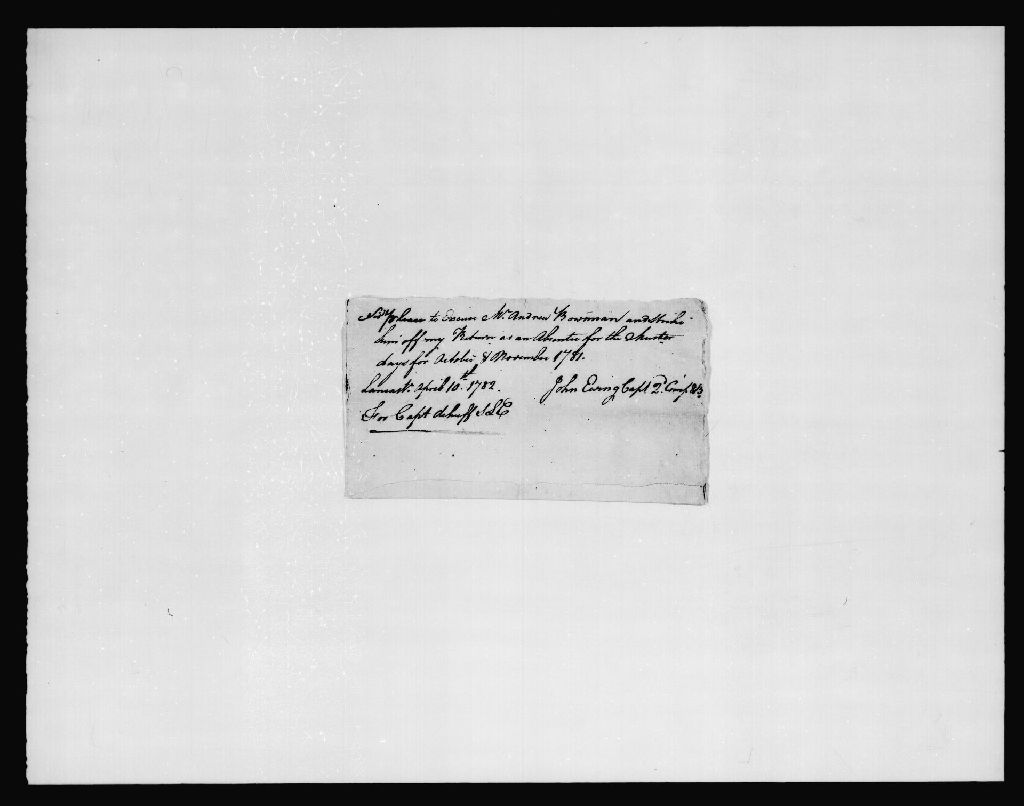 Sir please to Excuse Mr. Andrew Bowman and strike
him off my Return as an Absentee for the Muster
days for October & November 1781.
Lancastr. April 10th. 1782. John Ewing Capt 2d. Comp 8 B
For Capt dehuff S L C